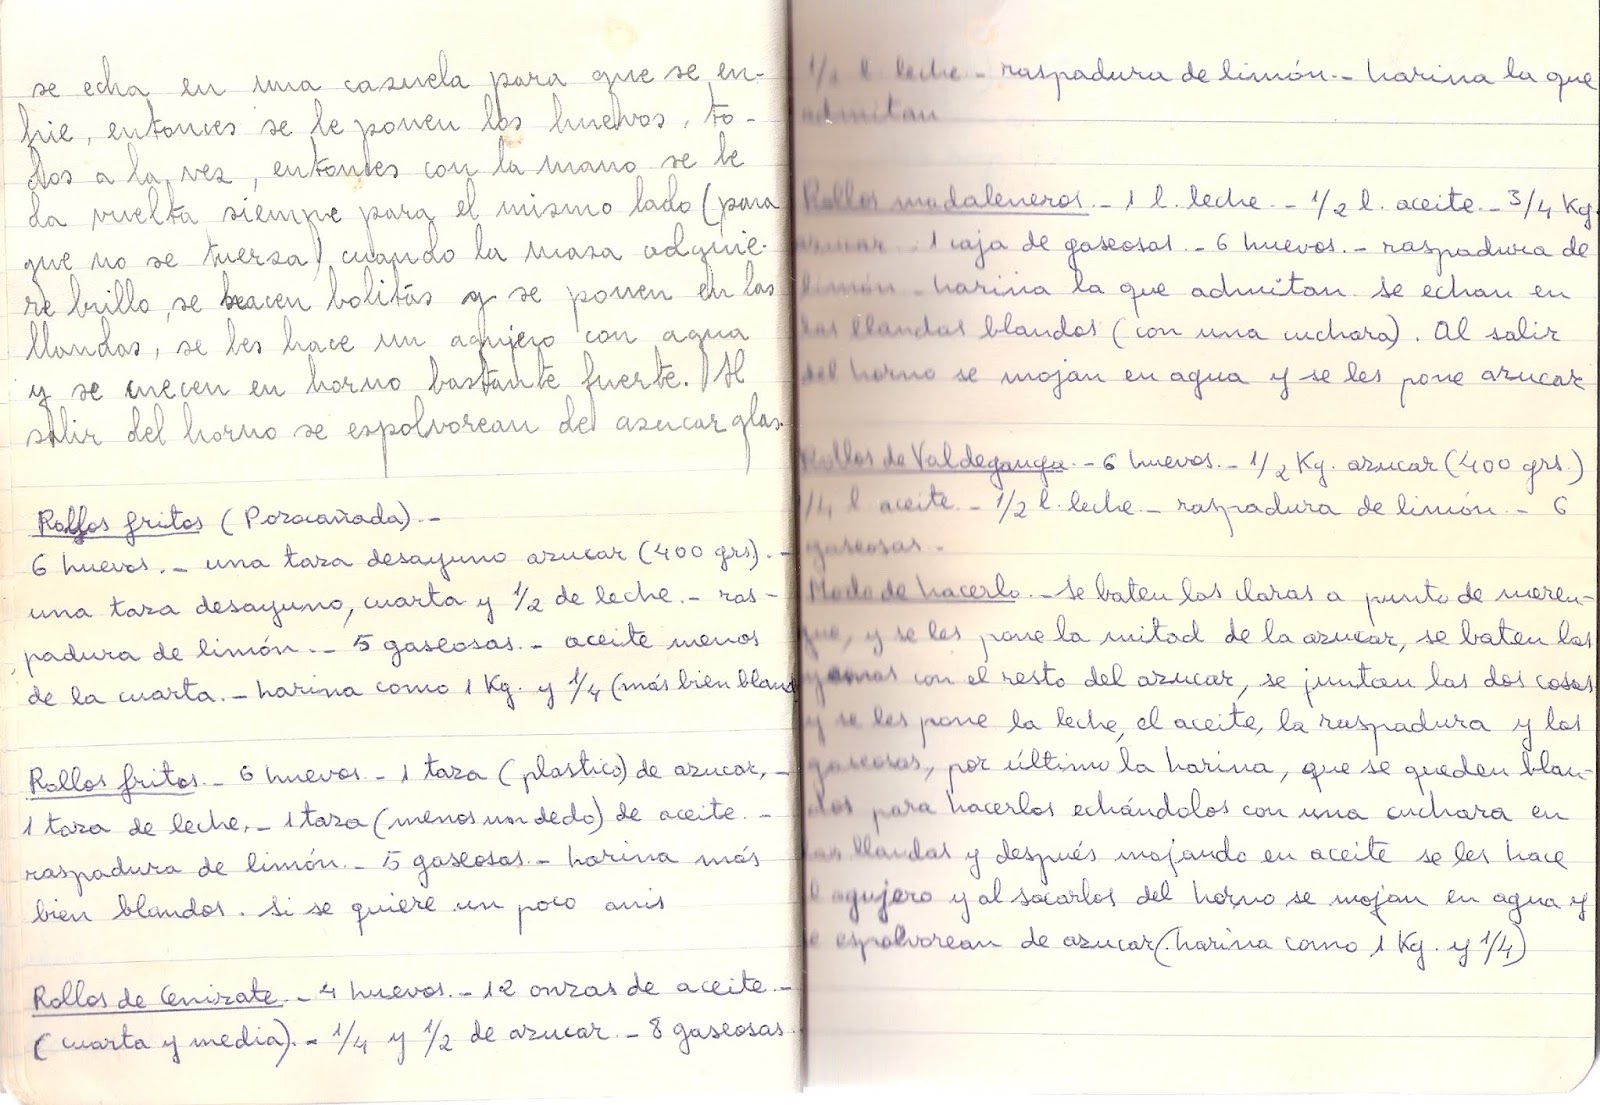 se echa en una cazuela para que se en-
frie, entonces se le ponen los huevos, to-
dos a la vez, entonces con la mano se le
da vuelta siempre para el mismo lado (para
que no se tuerza) cuando la masa adquie-
re brillo, se hacen bolitas y se ponen en las
llandas, se les hace un agujero con agua
y se cuecen en horno bastante fuerte. Al
salir del horno se espolvorean de azucar glas.
Rollos fritos (Pozocañada).-
6 huevos.- una taza desayuno azucar (400 grs).-
una taza desayuno, cuarta y 1/2 de leche.- ras-
padura de limón.- 5 gaseosas.- aceite menos
de la cuarta.- harina como 1 Kg. y 1/4 (más bien
Rollos fritos.- 6 huevos.- 1 taza (plastico) de azucar.-
1 taza de leche.- 1 taza (menos un dedo) de aceite.-
raspadura de limón.- 5 gaseosas.- harina más
bien blandos. Si se quiere un poco anis
Rollos de Cenizate.- 4 huevos.- 12 onzas de aceite.-
(cuarta y media).- 1/4 y 1/2 de azucar.- 8 gaseosas.
1/2 l. leche.- raspadura de limón.- harina la que
admitan
Rollos madaleneros.- 1 l. leche.- 1/2 l. aceite.- 3/4 Kg.
azucar.- 1 caja de gaseosas.- 6 huevos.- raspadura de
limón.- harina la que admitan. Se echan en
las llandas blandos (con una cuchara). Al salir
del horno se mojan en agua y se les pone azucar
Rollos de Valdeganga.- 6 huevos.- 1/2 Kg. azucar (400 grs.)
1/4 l aceite.- 1/2 l. leche.- raspadura de limón.- 6
gaseosas.-
Modo de hacerlo.- Se baten las claras a punto de meren-
gue, y se les pone la mitad de la azucar, se baten las
yemas con el resto del azucar, se juntan las dos cosas
y se les pone la leche, el aceite, la raspadura y las
gaseosas, por último la harina, que se queden blan-
dos para hacerlos echándolos con una cuchara en
las llandas y después mojando en aceite se les hace
el agujero y al sacarlos del horno se mojan en agua y
se espolvorean de azucar (harina como 1 Kg. y 1/4)